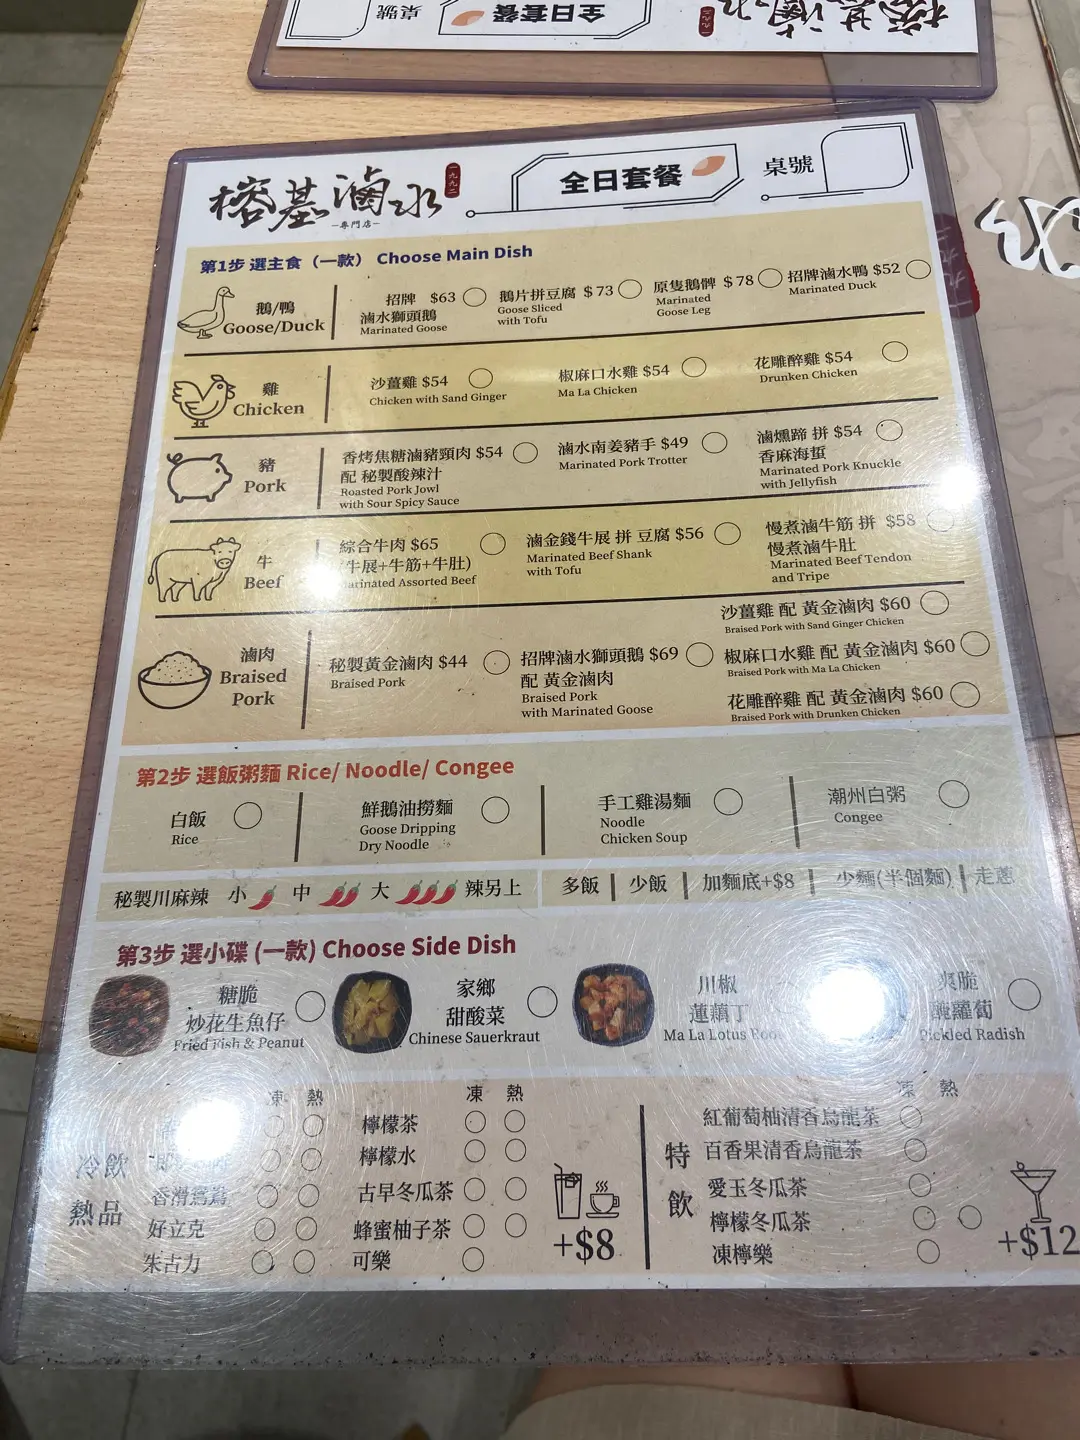 桌號
全日套餐
榕基滷水
一九九二
專門店
全日套餐
桌號
第1步 選主食（一款） Choose Main Dish
鵝/鴨
Goose/Duck
招牌 $63
滷水獅頭鵝
Marinated Goose
鵝片拼豆腐 $73
Goose Sliced
with Tofu
原隻鵝髀 $78
Marinated
Goose Leg
招牌滷水鴨 $52
Marinated Duck
雞
Chicken
沙薑雞 $54
Chicken with Sand Ginger
椒麻口水雞 $54
Ma La Chicken
花雕醉雞 $54
Drunken Chicken
豬
Pork
香烤焦糖滷豬頸肉 $54
配 秘製酸辣汁
Roasted Pork Jowl
with Sour Spicy Sauce
滷水南姜豬手 $49
Marinated Pork Trotter
滷燻蹄 拼 $54
香麻海蜇
Marinated Pork Knuckle
with Jellyfish
牛
Beef
綜合牛肉 $65
牛展+牛筋+牛肚)
Marinated Assorted Beef
滷金錢牛展 拼 豆腐 $56
Marinated Beef Shank
with Tofu
慢煮滷牛筋 拼 $58
慢煮滷牛肚
Marinated Beef Tendon
and Tripe
滷肉
Braised
Pork
秘製黃金滷肉 $44
Braised Pork
招牌滷水獅頭鵝 $69
配 黃金滷肉
Braised Pork
with Marinated Goose
沙薑雞 配 黃金滷肉 $60
Braised Pork with Sand Ginger Chicken
椒麻口水雞 配 黃金滷肉 $60
Braised Pork with Ma La Chicken
花雕醉雞 配 黃金滷肉 $60
Braised Pork with Drunken Chicken
第2步 選飯粥麵 Rice/ Noodle/ Congee
白飯
Rice
鮮鵝油撈麵
Goose Dripping
Dry Noodle
手工雞湯麵
Noodle
Chicken Soup
潮州白粥
Congee
秘製川麻辣 小 中 大 辣另上
多飯 | 少飯 | 加麵底+$8 | 少麵(半個麵) | 走蔥
第3步 選小碟 (一款) Choose Side Dish
糖脆
炒花生魚仔
Fried Fish & Peanut
家鄉
甜酸菜
Chinese Sauerkraut
川椒
蓮藕丁
Ma La Lotus Roo
爽脆
醃蘿蔔
Pickled Radish
冷飲
熱品
凍 熱
香滑鴛鴦
好立克
朱古力
凍 熱
檸檬茶
檸檬水
古早冬瓜茶
蜂蜜柚子茶
可樂
+$8
特
飲
凍 熱
紅葡萄柚清香烏龍茶
百香果清香烏龍茶
愛玉冬瓜茶
檸檬冬瓜茶
凍檸樂
+$12